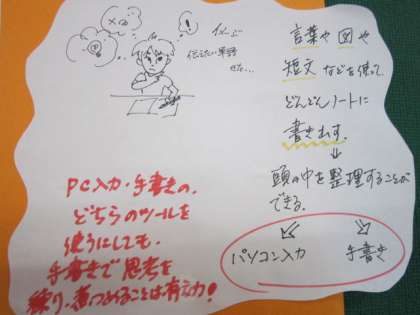 イメージ
伝えたい単語
せた...
言葉や図や
短文などを使って
どんどんノートに
書き出す。
頭の中を整理することが
できる。
パソコン入力
手書き
PC入力・手書きの、
どちらのツールを
使うにしても、
手書きで思考を
練り・煮つめることは有効!